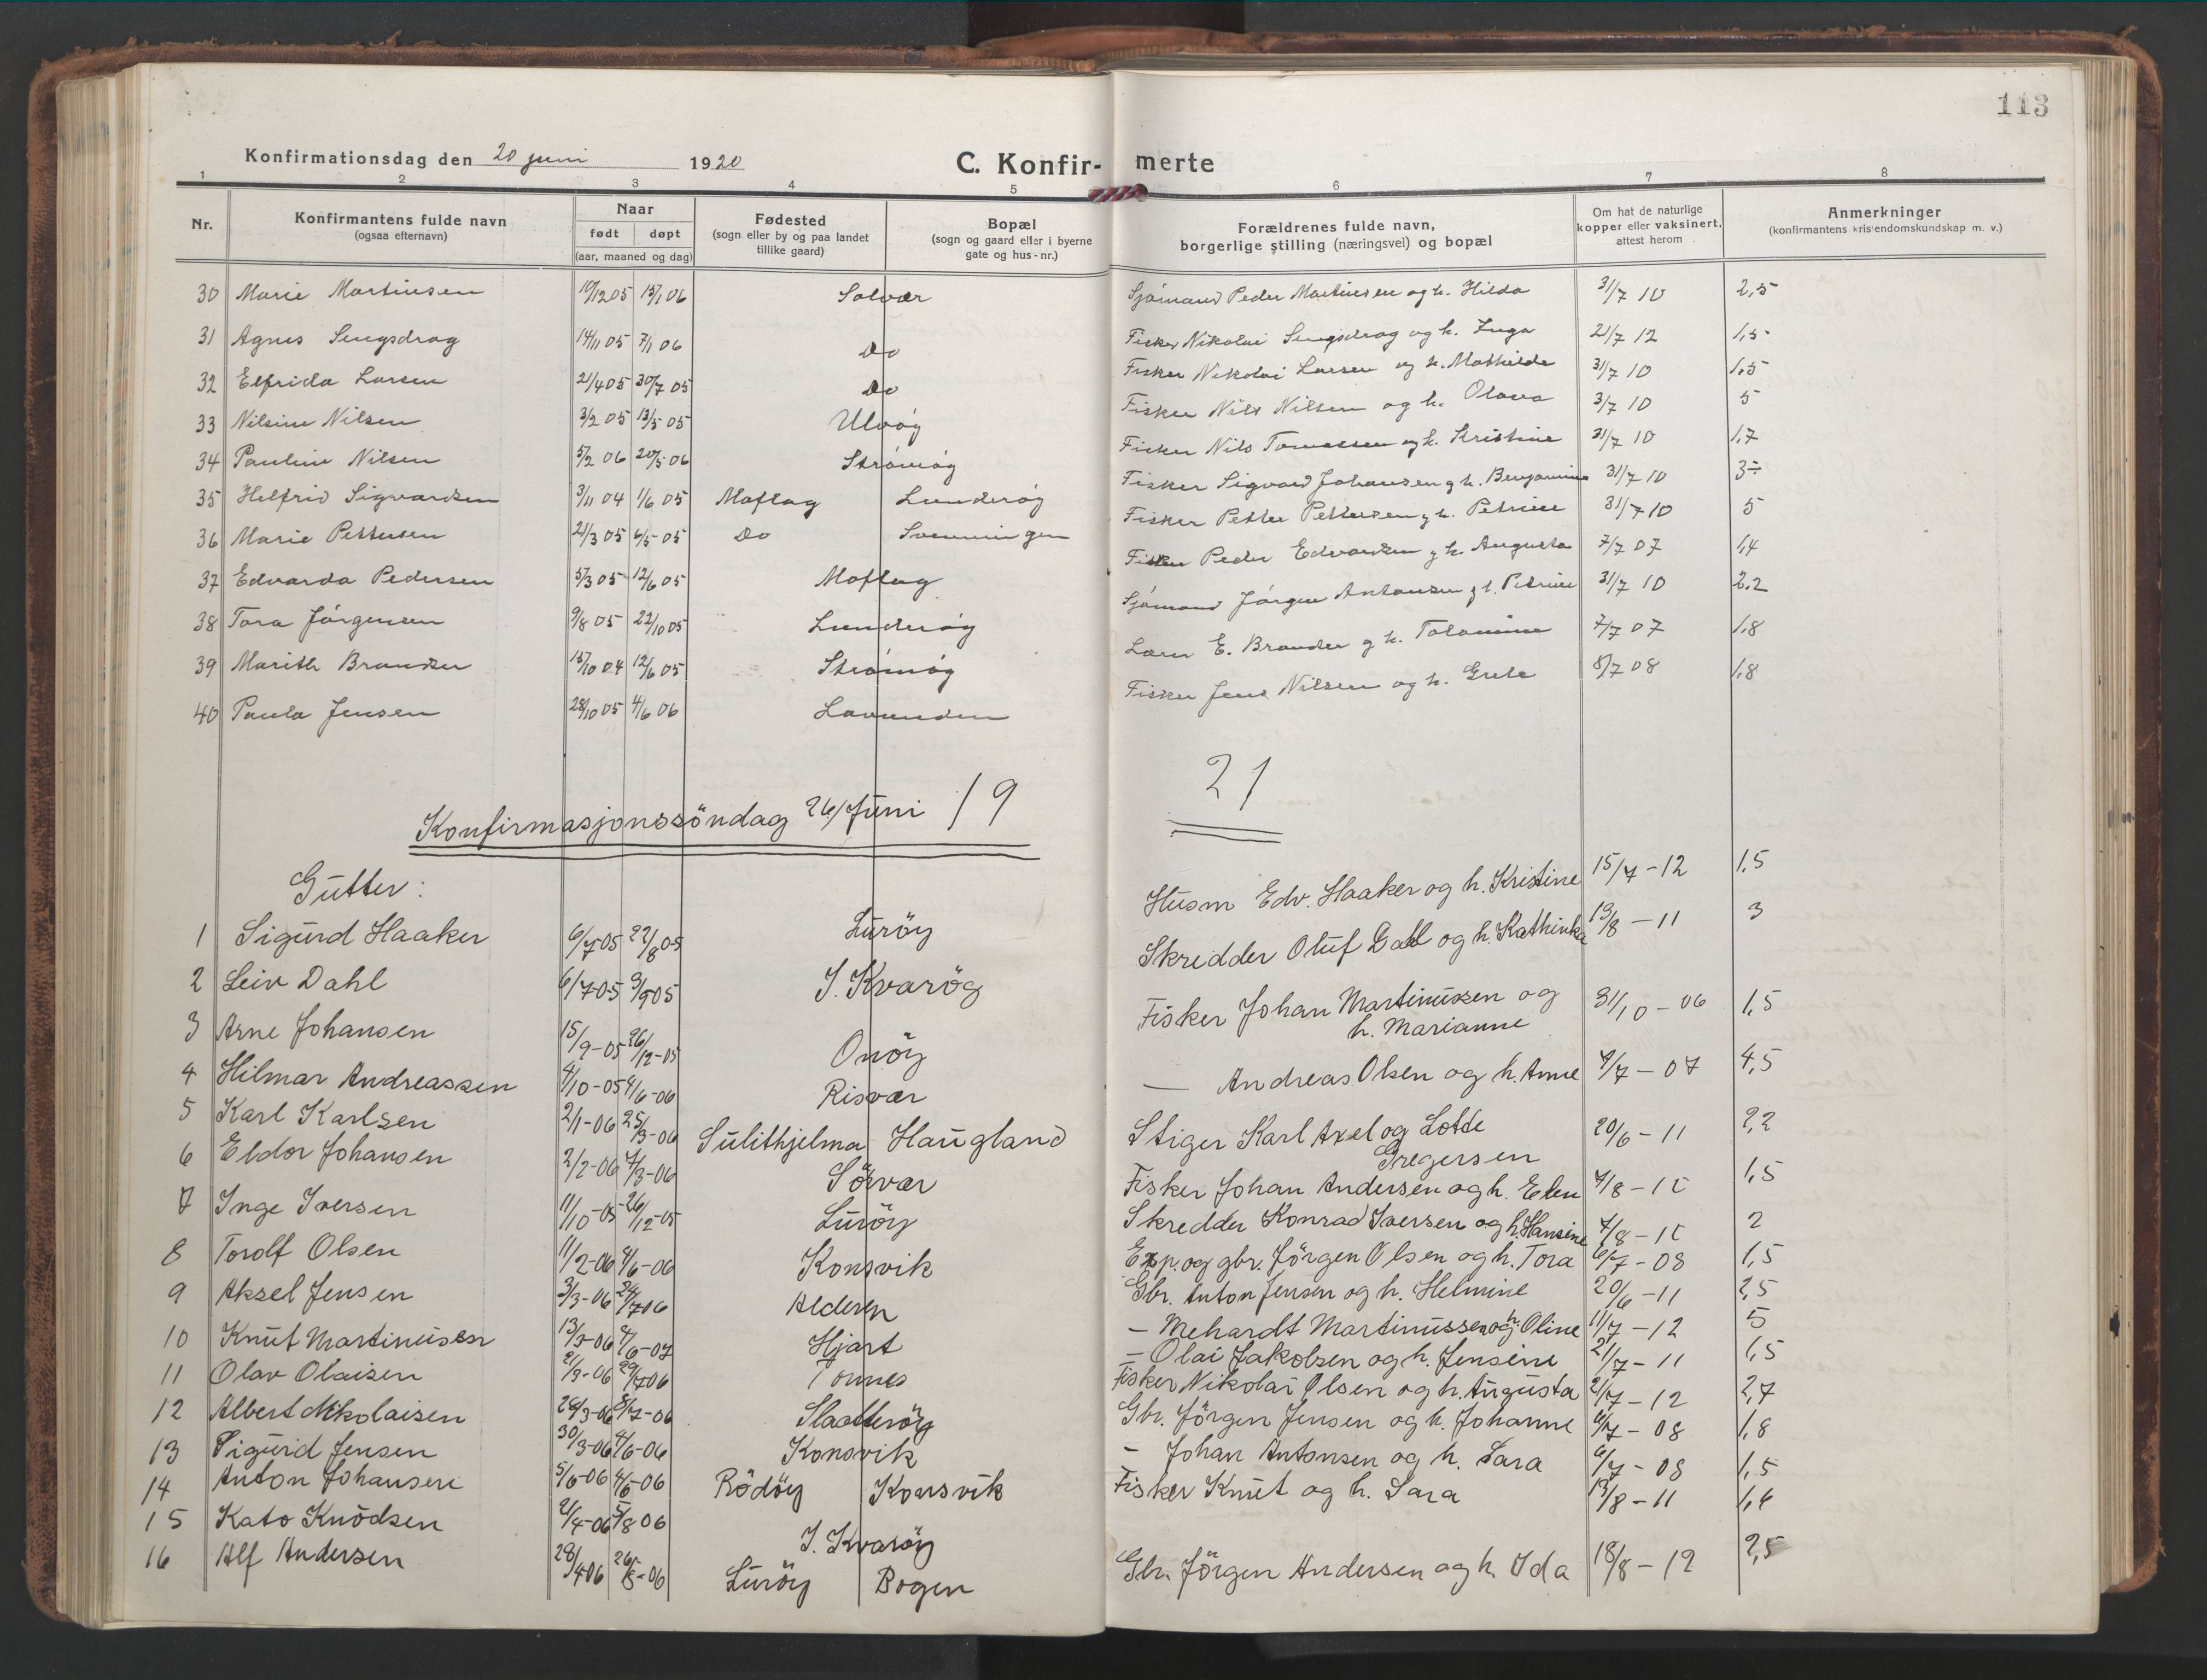 113
Konfirmationsdag den 20 juni 1920
C. Konfir- merte
1 2 3 4 5 6 7 8
Nr. Konfirmantens fulde navn (ogsaa efternavn) Naar født døpt (aar, maaned og dag) Fødested (sogn eller by og paa landet tillike gaard) Bopæl (sogn og gaard eller i byerne gate og hus-nr.) Forældrenes fulde navn, borgerlige stilling (næringsvei) og bopæl Om hat de naturlige kopper eller vaksinert, attest herom Anmerkninger (konfirmantens kristendomskundskap m. v.)
30 Marie Martinsen 19/12 05 15/1 06 Solvær Sjömand Peder Martinsen og h. Hilda 31/7 10 2,5
31 Agnes Sengsdrag 14/11 05 7/1 06 Do Fisker Nikolai Sengsdrag og h. Inga 21/7 12 1,5
32 Elfrida Larsen 21/4 05 30/7 05 Do Fisker Nikolai Larsen og h. Mathilde 31/7 10 1,5
33 Nilsine Nilsen 3/2 05 13/5 05 Ulvög Fisker Nils Nilsen og h. Olava 3/7 10 5
34 Pauline Nilsen 5/2 06 20/5 06 Strömög Fisker Nils Tomassen og h. Kristine 31/7 10 1,7
35 Helfrid Sigvardsen 3/11 04 1/6 05 Moflag Lunderög Fisker Sigvard Johansen og h. Benjamine 31/7 10 3÷
36 Marie Pettersen 21/3 05 6/5 05 Do Svenningen Fisker Petter Pettersen og h. Petrine 31/7 10 5
37 Edvarda Pedersen 5/3 05 12/6 05 Moflag Fisker Peder Edvardsen og h. Augusta 7/7 07 1,4
38 Tora Jörgensen 9/8 05 22/10 05 Lunderög Sjömand Jörgen Antonsen og h. Petrine 31/7 10 2,2
39 Marith Brandser 15/10 04 12/6 05 Strömög Lærer E. Brandser og h. 7/7 07 1,8
40 Paula Jensen 28/10 05 4/6 06 Lovunden Fisker Jens Nilsen og h. Grete 8/7 08 1,8
Konfirmasjonssöndag 26/Juni 19 21
Gutter:
1 Sigurd Haaker 6/7 05 27/8 05 Luröy Husm Edv. Haaker og h. Kristine 15/7-12 1,5
2 Leiv Dahl 6/7 05 3/9 05 I. Kvaröy Skredder Oluf Dahl og h. Kathinka 13/8-11 3
3 Arne Johansen 15/9-05 26/12-05 Onöy Fisker Johan Martinussen og h. Marianne 31/10-06 1,5
4 Hilmar Andreassen 4/10-05 4/6-06 Risvær — Andreas Olsen og h. Anne 7/7-07 4,5
5 Karl Karlsen 2/1-06 25/3-06 Sulithjelma Haugland Stiger Karl Axel og Lotte Gregersen 20/6-11 2,2
6 Eldor Johansen 2/2-06 7/3-06 Sörvær Fisker Johan Andersen og h. Elen 7/8-10 1,5
7 Inge Iversen 11/10-05 26/12-05 Luröy Skredder Konrad Iversen og h. Hansine 7/8-10 2
8 Torolf Olsen 11/2-06 4/6-06 Konsvik Exp. og gbr. Jörgen Olsen og h. Tora 6/7-08 1,5
9 Aksel Jensen 3/3-06 29/7 06 Alderen Gbr. Anton Jensen og h. Helmine 20/6-11 2,5
10 Knut Martinusen 13/3-06 4/6-07 Hjart — Mehardt Martinussen og h. Oline 11/7-12 5
11 Olav Olaisen 21/3-06 29/7 06 Tonnes — Olai Jakobsen og h. Jensine 21/7-11 1,5
12 Albert Nikolaisen 28/3-06 8/7-06 Slaatteröy Fisker Nikolai Olsen og h. Augusta 21/7-12 2,7
13 Sigurd Jensen 30/3-06 4/6-06 Konsvik Gbr. Jörgen Jensen og h. Johanne 6/7-08 1,8
14 Anton Johansen 5/6-06 4/6-06 Rödöy Konsvik — Johan Antonsen og h. Sara 6/7-08 1,5
15 Kato Knudsen 21/4-06 5/8 06 I. Kvaröy Fisker Knut og h. Sara 13/8-11 1,6
16 Alf Andersen 28/4 06 26/5-06 Luröy Bogen Gbr. Jörgen Andersen og h. Ida 18/8-12 2,5